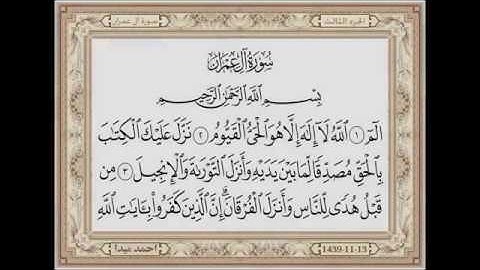 الجزء الثالث
سورة آل عمران
سُورَةُ آلِ عِمْرَان
بِسْمِ اللَّهِ الرَّحْمَٰنِ الرَّحِيمِ
الٓمٓ ١ اللَّهُ لَآ إِلَٰهَ إِلَّا هُوَ الْحَيُّ الْقَيُّومُ ٢ نَزَّلَ عَلَيْكَ الْكِتَٰبَ
بِالْحَقِّ مُصَدِّقًا لِّمَا بَيْنَ يَدَيْهِ وَأَنزَلَ التَّوْرَىٰةَ وَالْإِنجِيلَ ٣ مِن
قَبْلُ هُدًى لِّلنَّاسِ وَأَنزَلَ الْفُرْقَانَ ۗ إِنَّ الَّذِينَ كَفَرُوا۟ بِـَٔايَٰتِ اللَّهِ
1439-11-13
احمد عبدا